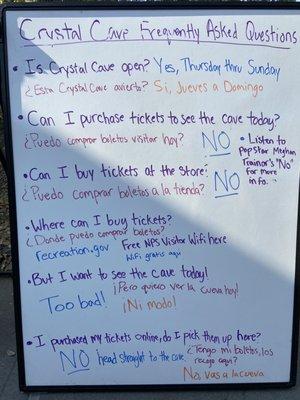 Crystal Cave Frequently Asked Questions
• Is Crystal Cave open? Yes, Thursday thru Sunday
¿Esta Crystal Cave avierto? Si, Jueves a Domingo
• Can I purchase tickets to see the cave today?
¿Puedo comprar boletos visitar hoy? NO
• Listen to
pop star Meghan
Trainor's "No"
for more
info.
• Can I buy tickets at the store?
¿Puedo comprar boletos a la tienda? NO
• Where can I buy tickets?
¿Donde puedo comprar boletos?
recreation.gov Free NPS Visitor Wifi here
Wifi gratis aqui
• But I want to see the cave today!
¡Pero quiero ver la cueva hoy!
Too bad! ¡Ni modo!
• I purchased my tickets online, do I pick them up here?
NO head straight to the cave.
¿Tengo mi boletos, los
recojo aqui?
No, vas a la cueva